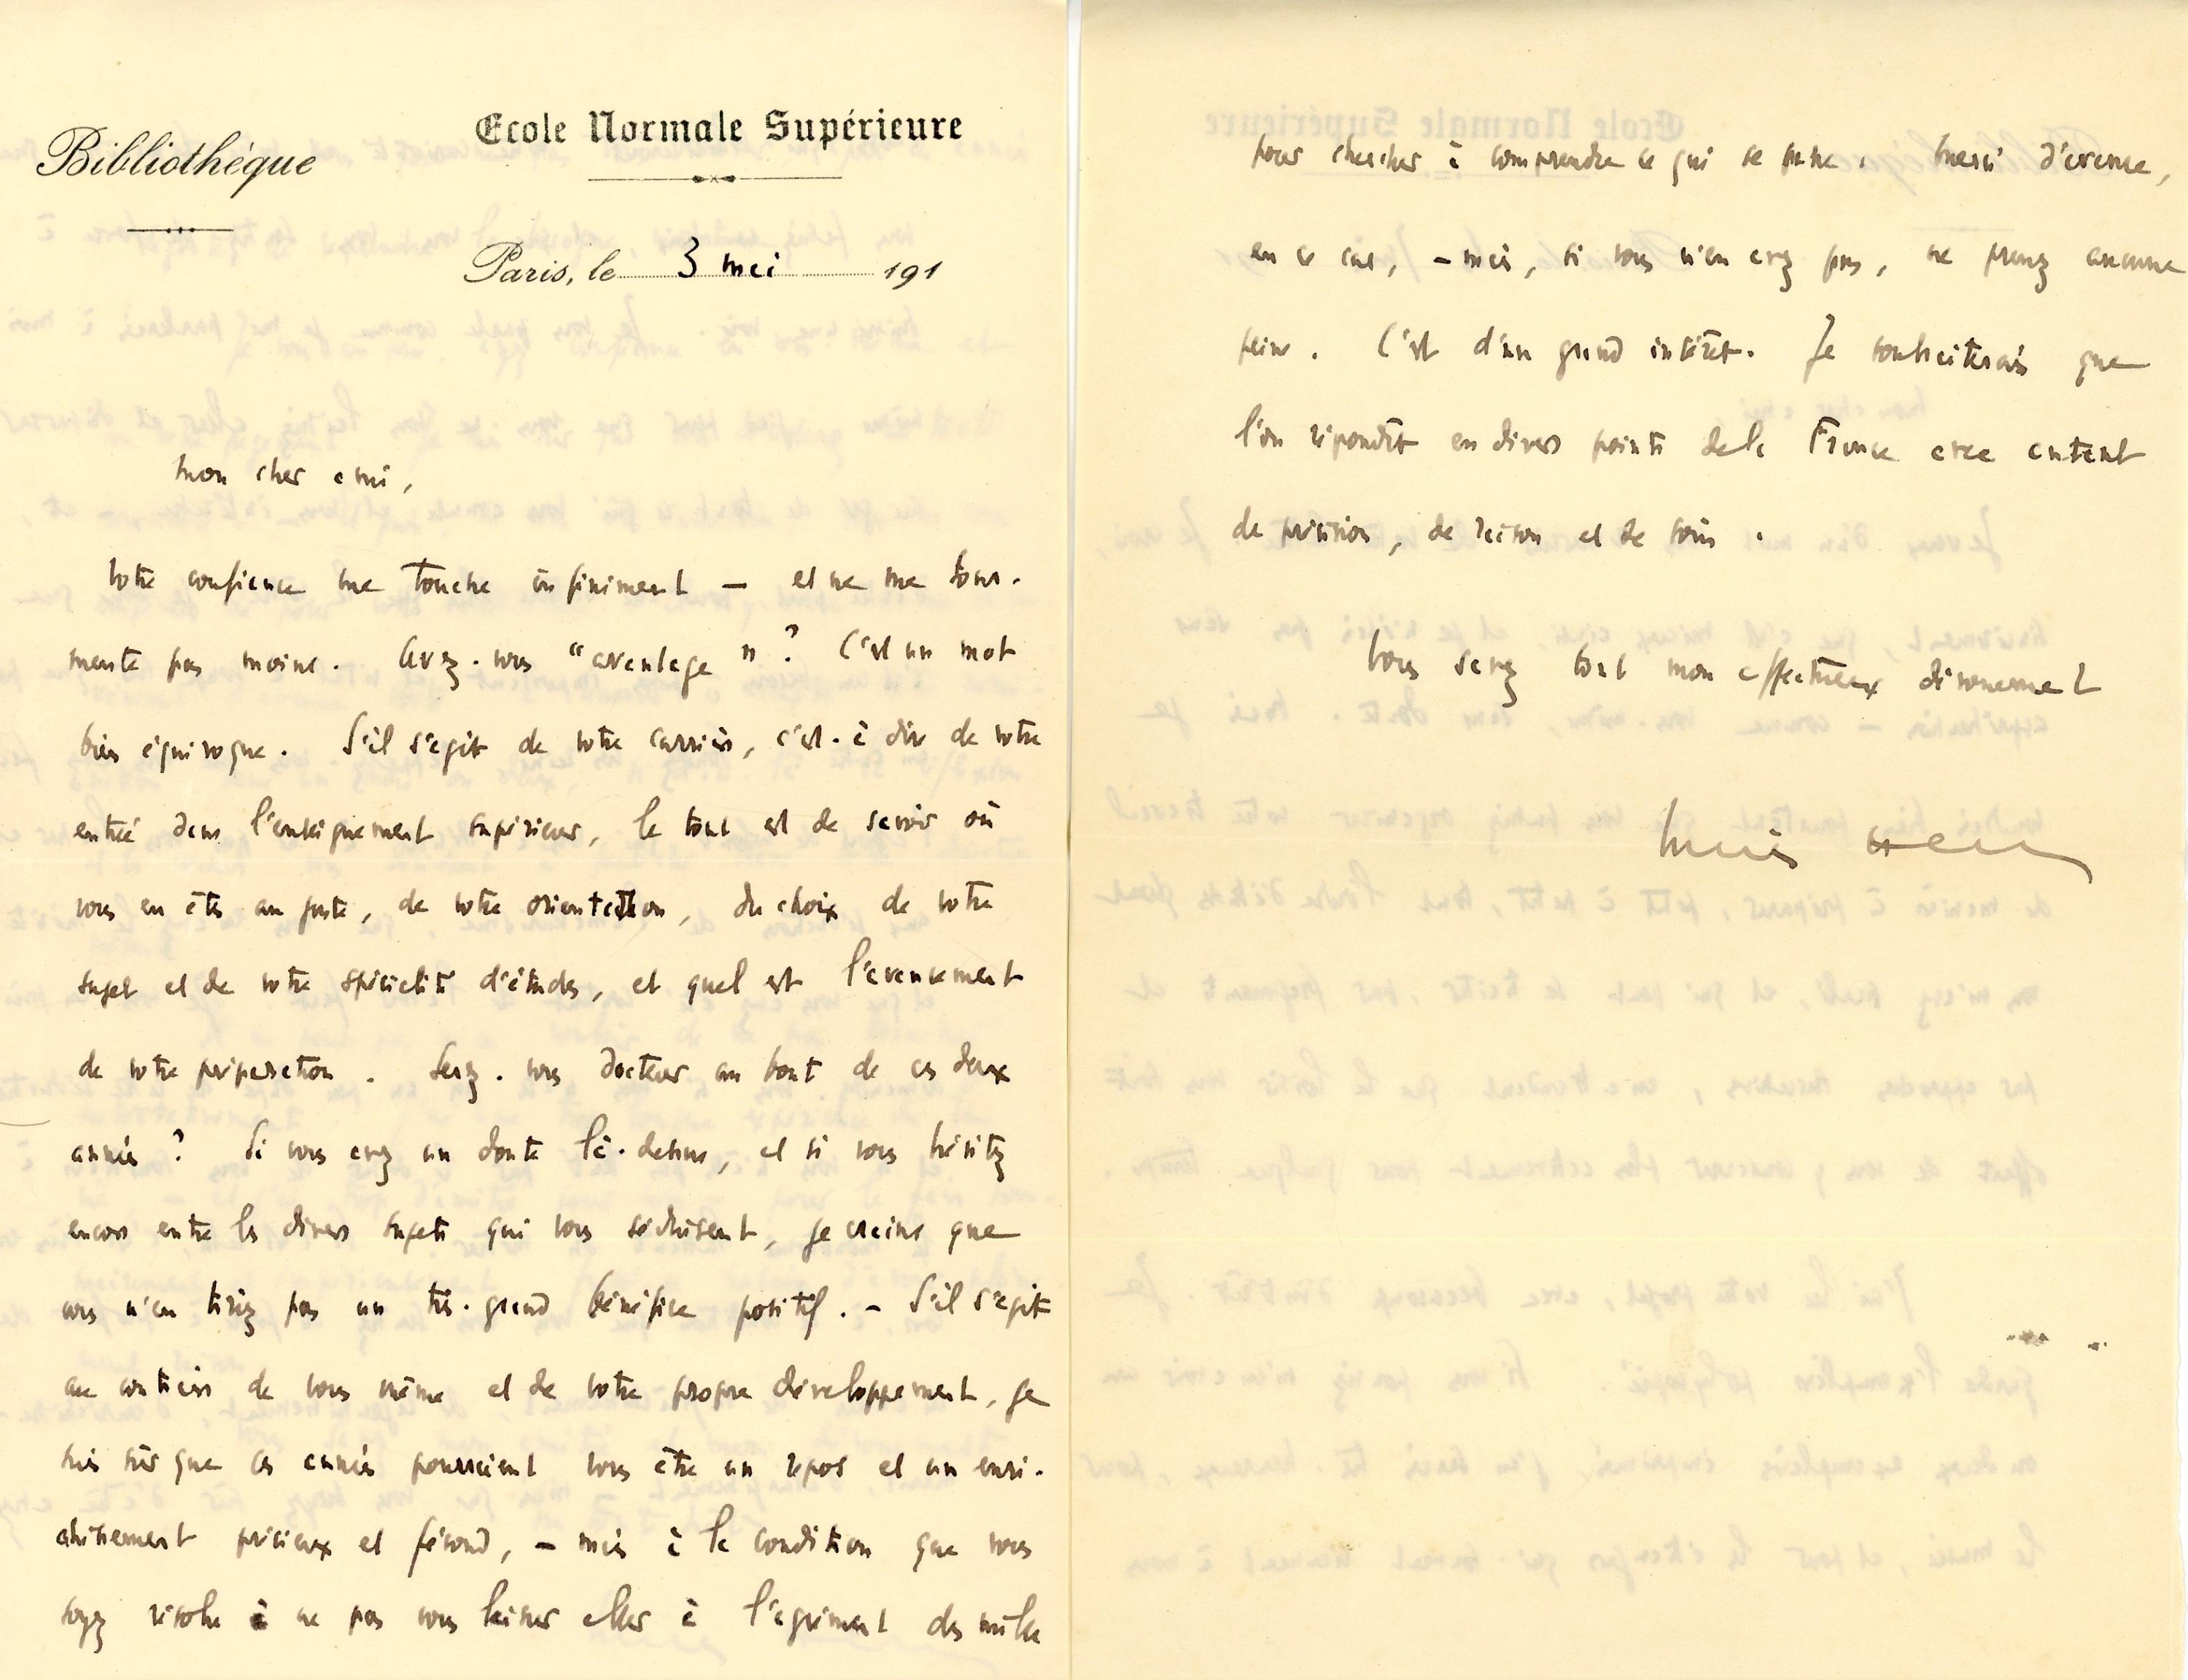 Bibliothèque
Ecole Normale Supérieure
Paris, le 3 mai 191
Mon cher ami,
Votre confiance me touche infiniment — et ne me tour-
mente pas moins. Avez-vous "avantage" ? C'est un mot
bien équivoque. S'il s'agit de votre carrière, c'est-à-dire de votre
entrée dans l'enseignement supérieur, le tout est de savoir où
vous en êtes au juste, de votre orientation, du choix de votre
sujet et de votre spécialité d'études, et quel est l'avancement
de votre préparation. Serez-vous docteur au bout de ces deux
années ? Si vous avez un doute là-dessus, et si vous hésitez
encore entre les divers sujets qui vous séduisent, je crains que
vous n'en tiriez pas un très-grand bénéfice positif. - S'il s'agit
au contraire de vous même et de votre propre développement, je
suis sûr que ces années pourraient vous être un repos et un enri-
chissement précieux et fécond, - mais à la condition que vous
soyez résolu à ne pas vous laisser aller à l'agrément des mille
pour chercher à comprendre ce qui se passe. Merci d'avance,
en ce cas, - mais, si vous n'en avez pas, ne prenez aucune
peine. C'est d'un grand intérêt. Je souhaiterais que
l'on répondît en divers points de la France avec autant
de précision, de raison et de soin.
Vous savez tout mon affectueux dévouement
Lucien Herr